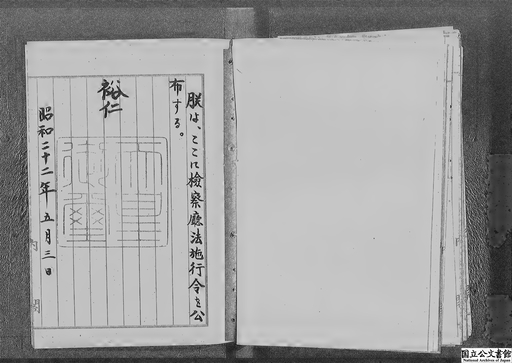 朕は、ここに檢察廳法施行令を公
布する。
裕仁
天皇御璽
昭和二十二年五月三日
内閣
国立公文書館
National Archives of Japan